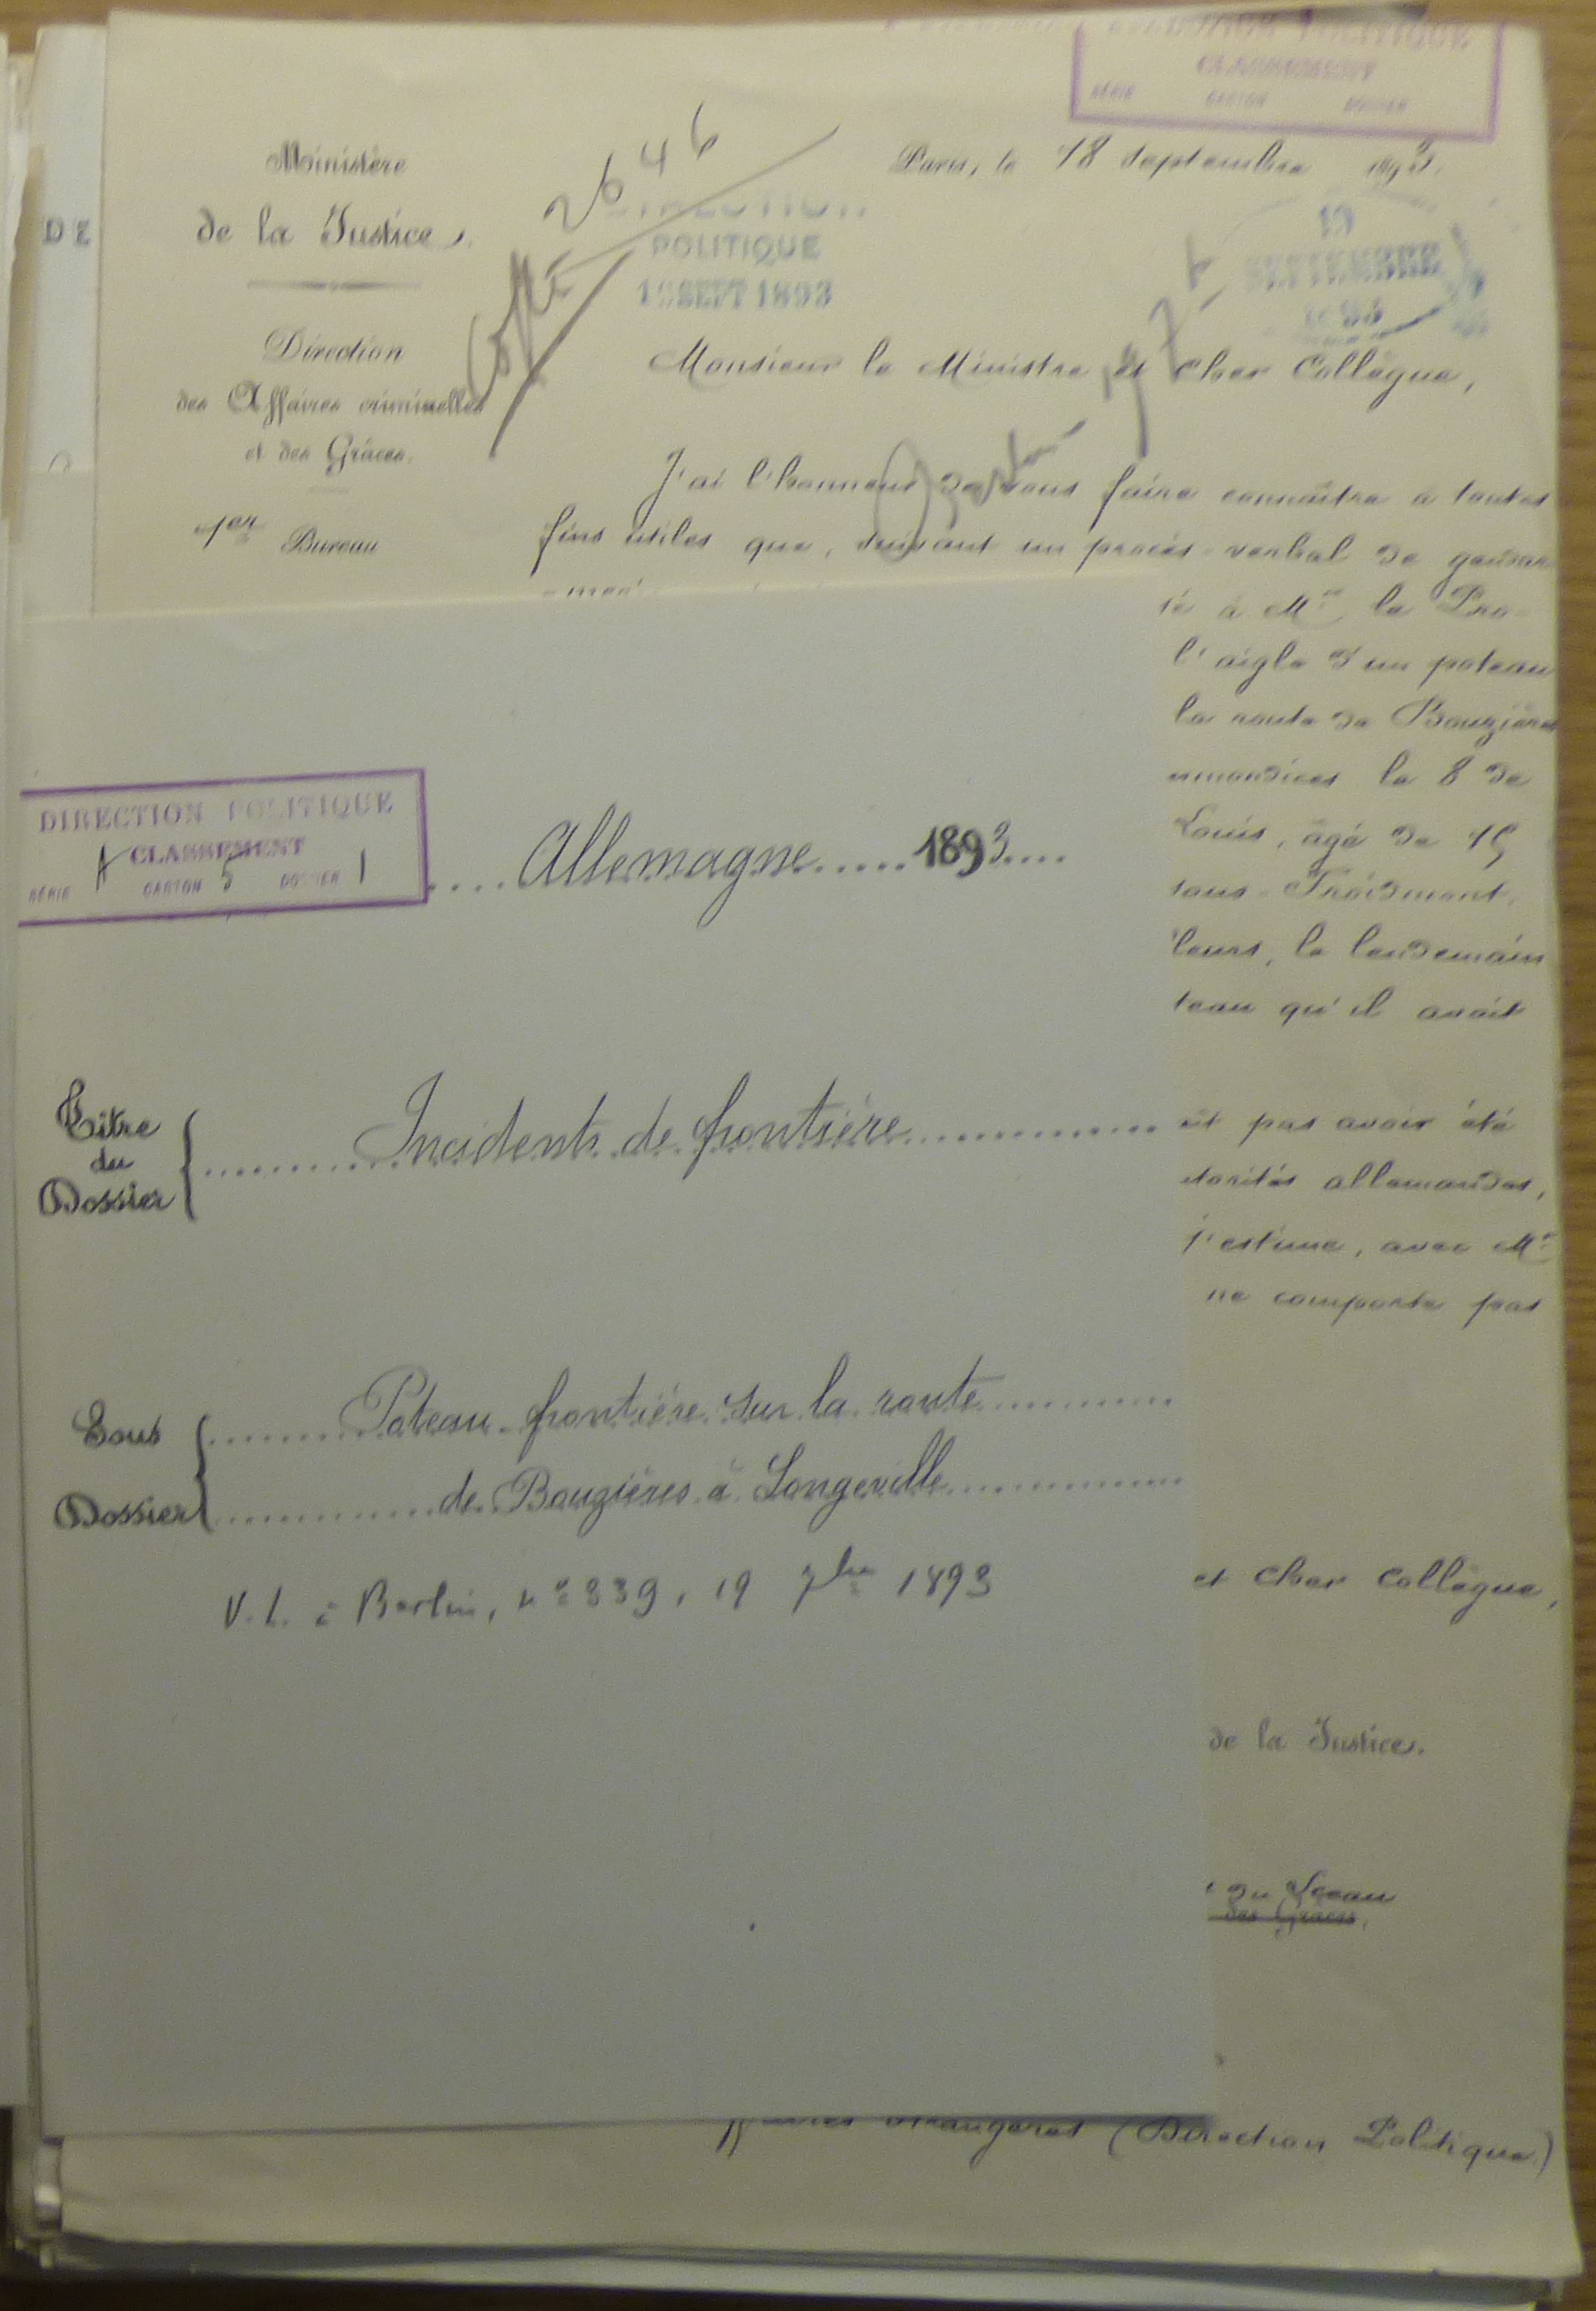 DIRECTION POLITIQUE
CLASSEMENT
SÉRIE CARTON DOSSIER
Ministère
de la Justice.
Direction
des Affaires criminelles
et des Grâces.
1er Bureau
2646
DIRECTION
POLITIQUE
SEPT 1893
Paris, le 18 septembre 1893.
19
SEPTEMBRE
1893
Monsieur le Ministre et cher Collègue,
J'ai l'honneur de vous faire connaître à toutes
fins utiles que, suivant un procès-verbal de gendar
é à Mr le Pro-
l'aigle d'un poteau
la route de Bouzières
immondices le 8 de
Louis, âgé de 15
sous-Froidmont,
leurs, le lendemain
teau qu'il avait
ait pas avoir été
torités allemandes,
j'estime, avec Mr
ne comporte pas
et cher Collègue,
de la Justice.
du Sceau
des Grâces,
DE
DIRECTION POLITIQUE
CLASSEMENT
SÉRIE A CARTON 5 DOSSIER 1
Allemagne 1893
Titre
du
Dossier
Incidents de frontière
Sous
Dossier
Poteau-frontière sur la route
de Bouzières à Longeville
V. L. à Berlin, nº 239, 19 7bre 1893
étrangères (Direction Politique)